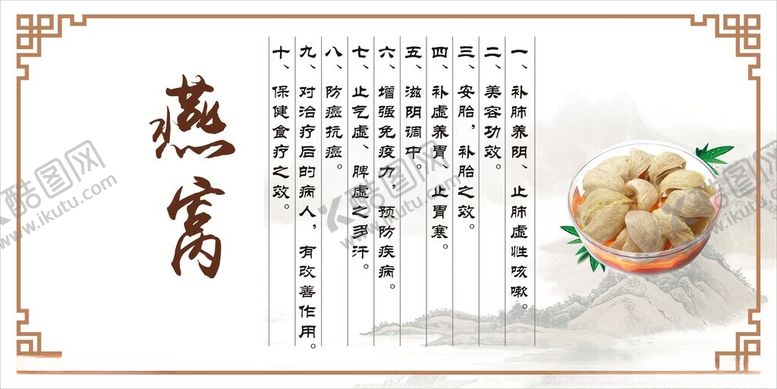 燕窝
一、补肺养阴、止肺虚性咳嗽。
二、美容功效。
三、安胎，补胎之效。
四、补虚养胃、止胃寒。
五、滋阴调中。
六、增强免疫力，预防疾病。
七、止气虚、脾虚之多汗。
八、防癌抗癌。
九、对治疗后的病人，有改善作用。
十、保健食疗之效。
酷图网
www.ikutu.com